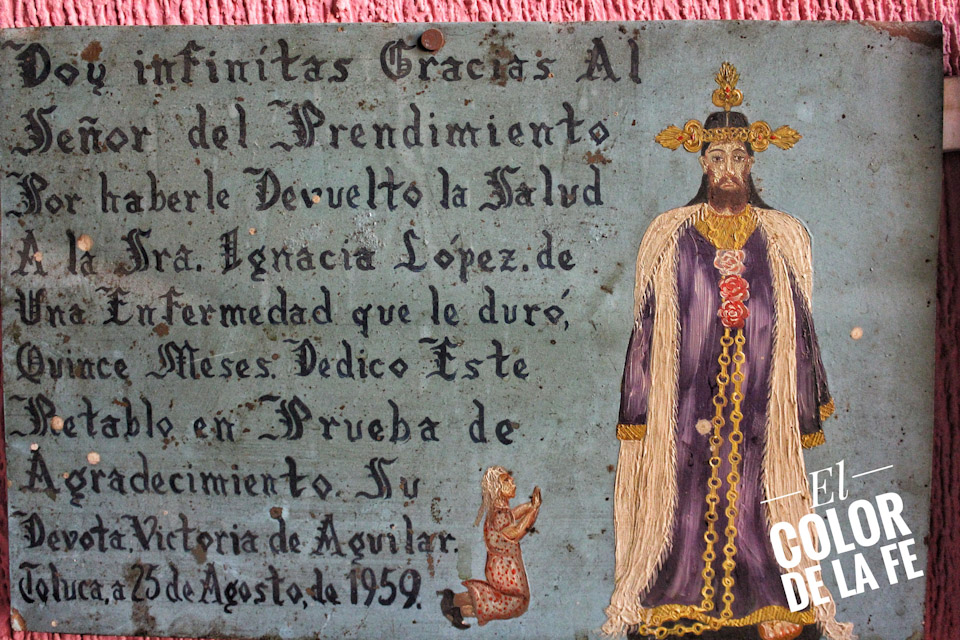 Doy infinitas Gracias Al
Señor del Prendimiento
Por haberle Devuelto la Salud
A la Sra. Ignacia López. de
Una Enfermedad que le duró,
Quince Meses. Dedico Este
Retablo en Prueba de
Agradecimiento. Su
Devota. Victoria de Aguilar.
Toluca, a 25 de Agosto, de 1959.
El
COLOR
DE LA FE